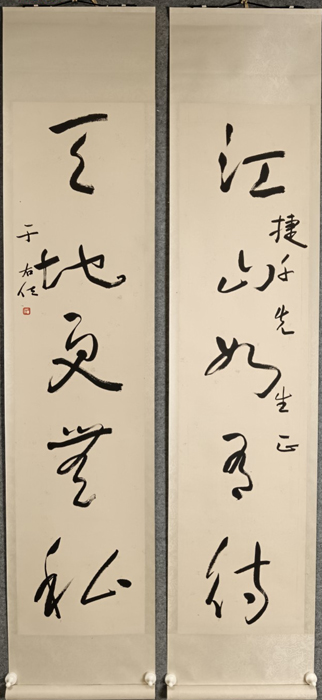 江山如有待
捷千先生正
天地更無私
于右任